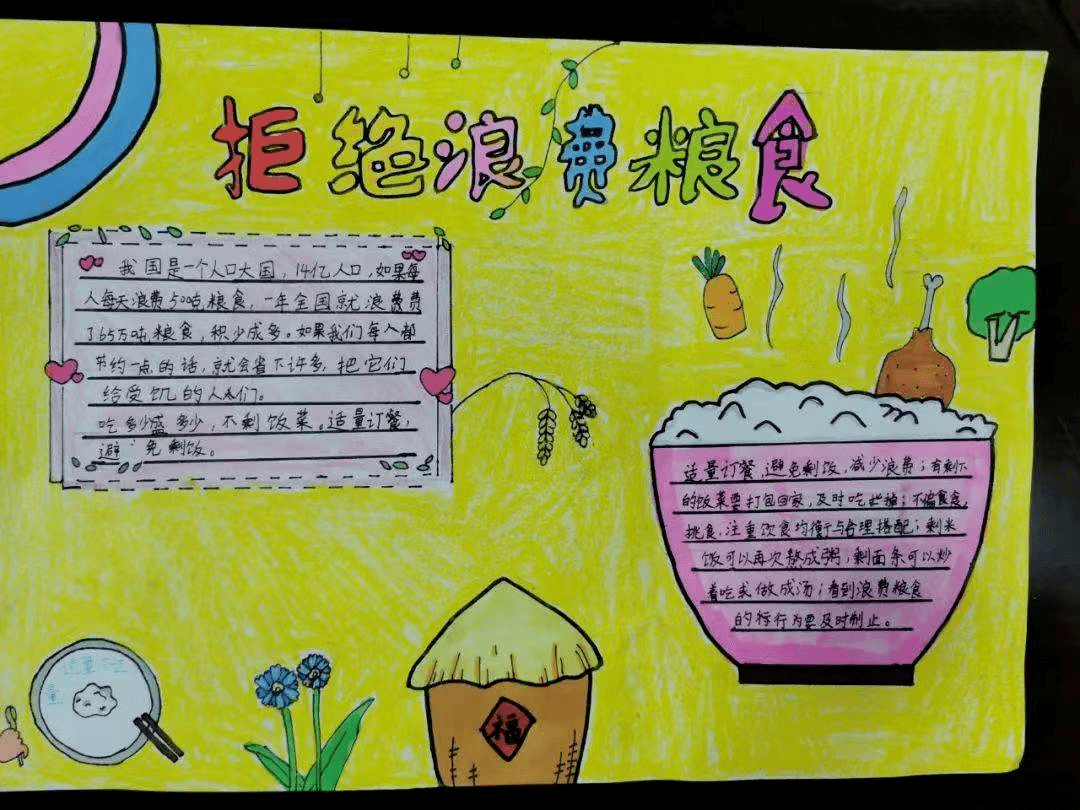 拒绝浪费粮食
我国是一个人口大国，14亿人口，如果每
人每天浪费500吨粮食，一年全国就浪费费
了65万吨粮食，积少成多。如果我们每人都
节约一点的话，就会省下许多，把它们
给受饥的人们。
吃多少盛多少，不剩饭菜。适量订餐，
避免剩饭。
适量订餐，避免剩饭，减少浪费；有剩下
的饭菜要打包回家，及时吃掉；不偏食
挑食，注重饮食均衡与合理搭配；剩米
饭可以再次熬成粥，剩面条可以炒
着吃或做成汤；看到浪费粮食
的行为要及时制止。
适量不过
量
福